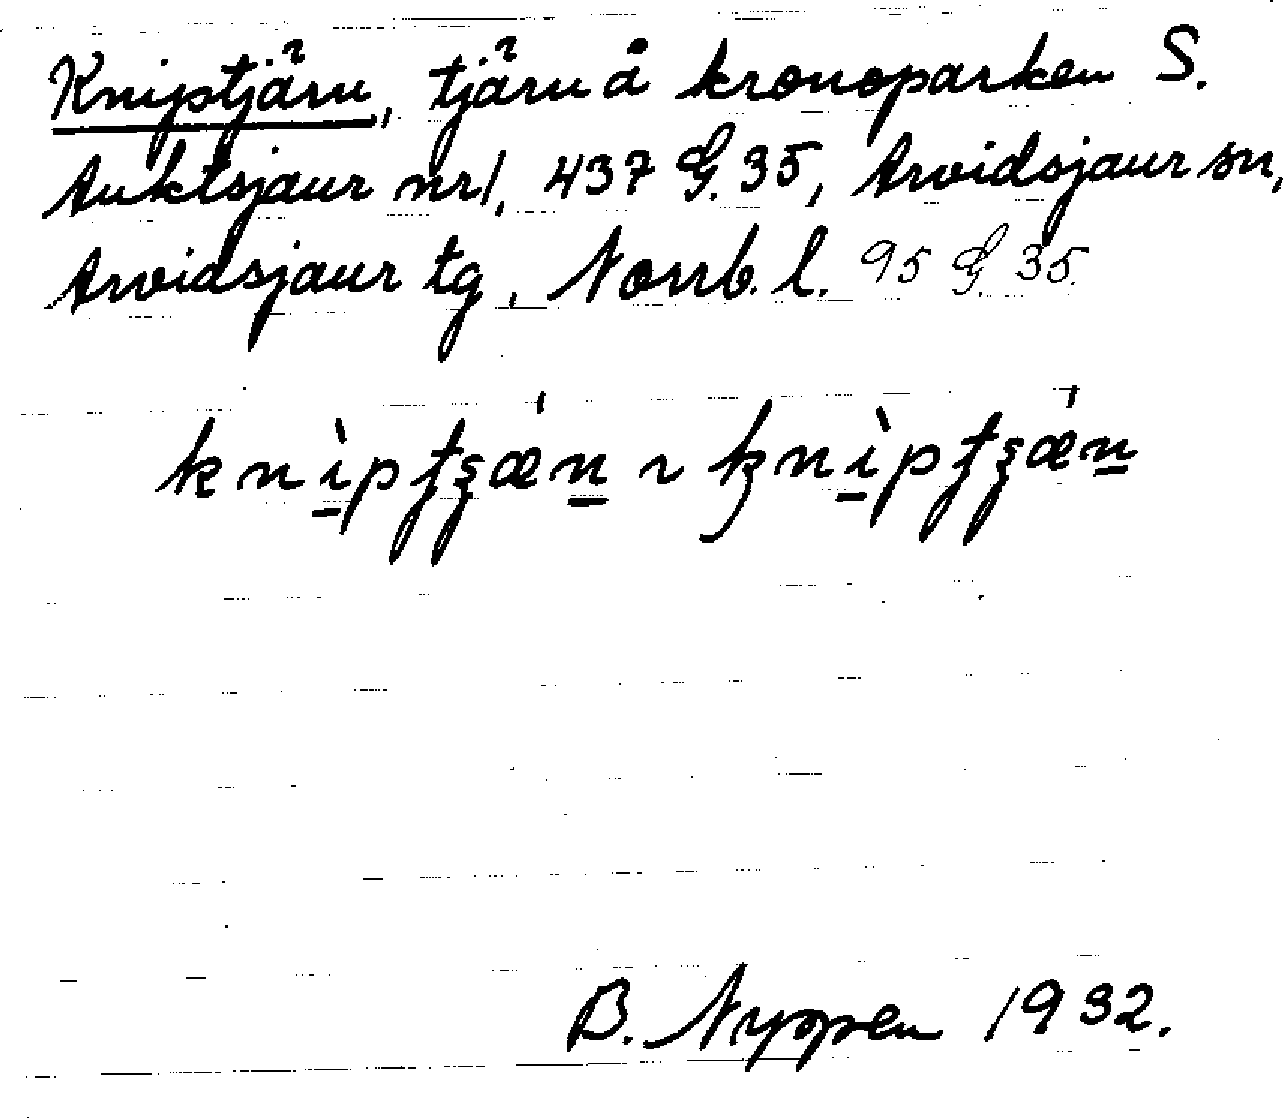 Kniptjärn, tjärn å kronoparken S.
Auktsjaur nr 1, 437 G. 35, Arvidsjaur sn,
Arvidsjaur tg, Norrb. l. 95 G. 35.
B. Nyppen 1932.